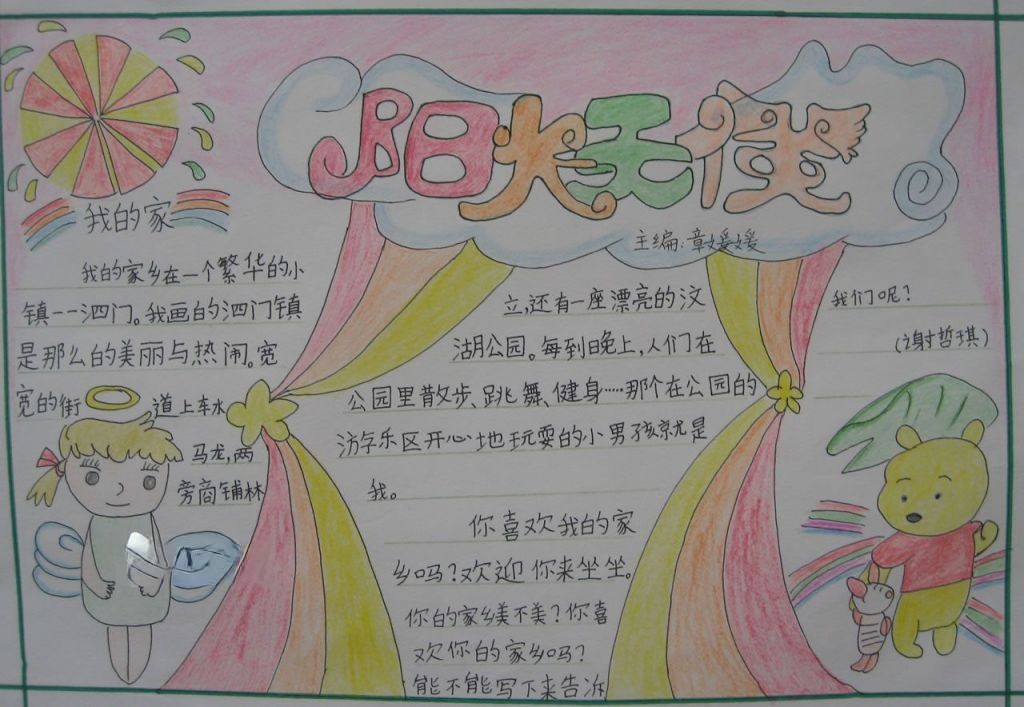 阳光天使
主编:章媛媛
我的家
我的家乡在一个繁华的小
镇--泗门。我画的泗门镇
是那么的美丽与热闹。宽
宽的街道上车水
马龙,两
旁商铺林
立,还有一座漂亮的汶
湖公园。每到晚上,人们在
公园里散步、跳舞、健身……那个在公园的
游乐区开心地玩耍的小男孩就是
我。
你喜欢我的家
乡吗?欢迎你来坐坐。
你的家乡美不美?你喜
欢你的家乡吗?
能不能写下来告诉
我们呢?
(谢哲琪)